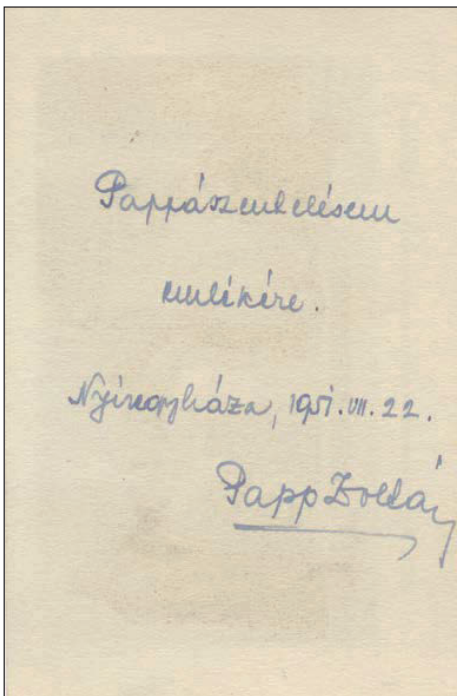 Pappászentelésem
emlékére.
Nyíregyháza, 1951. VII. 22.
Papp Zoltán